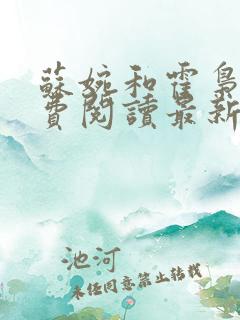 蘇婉和霍梟
費閱讀最新
池河
未經同意禁止轉載